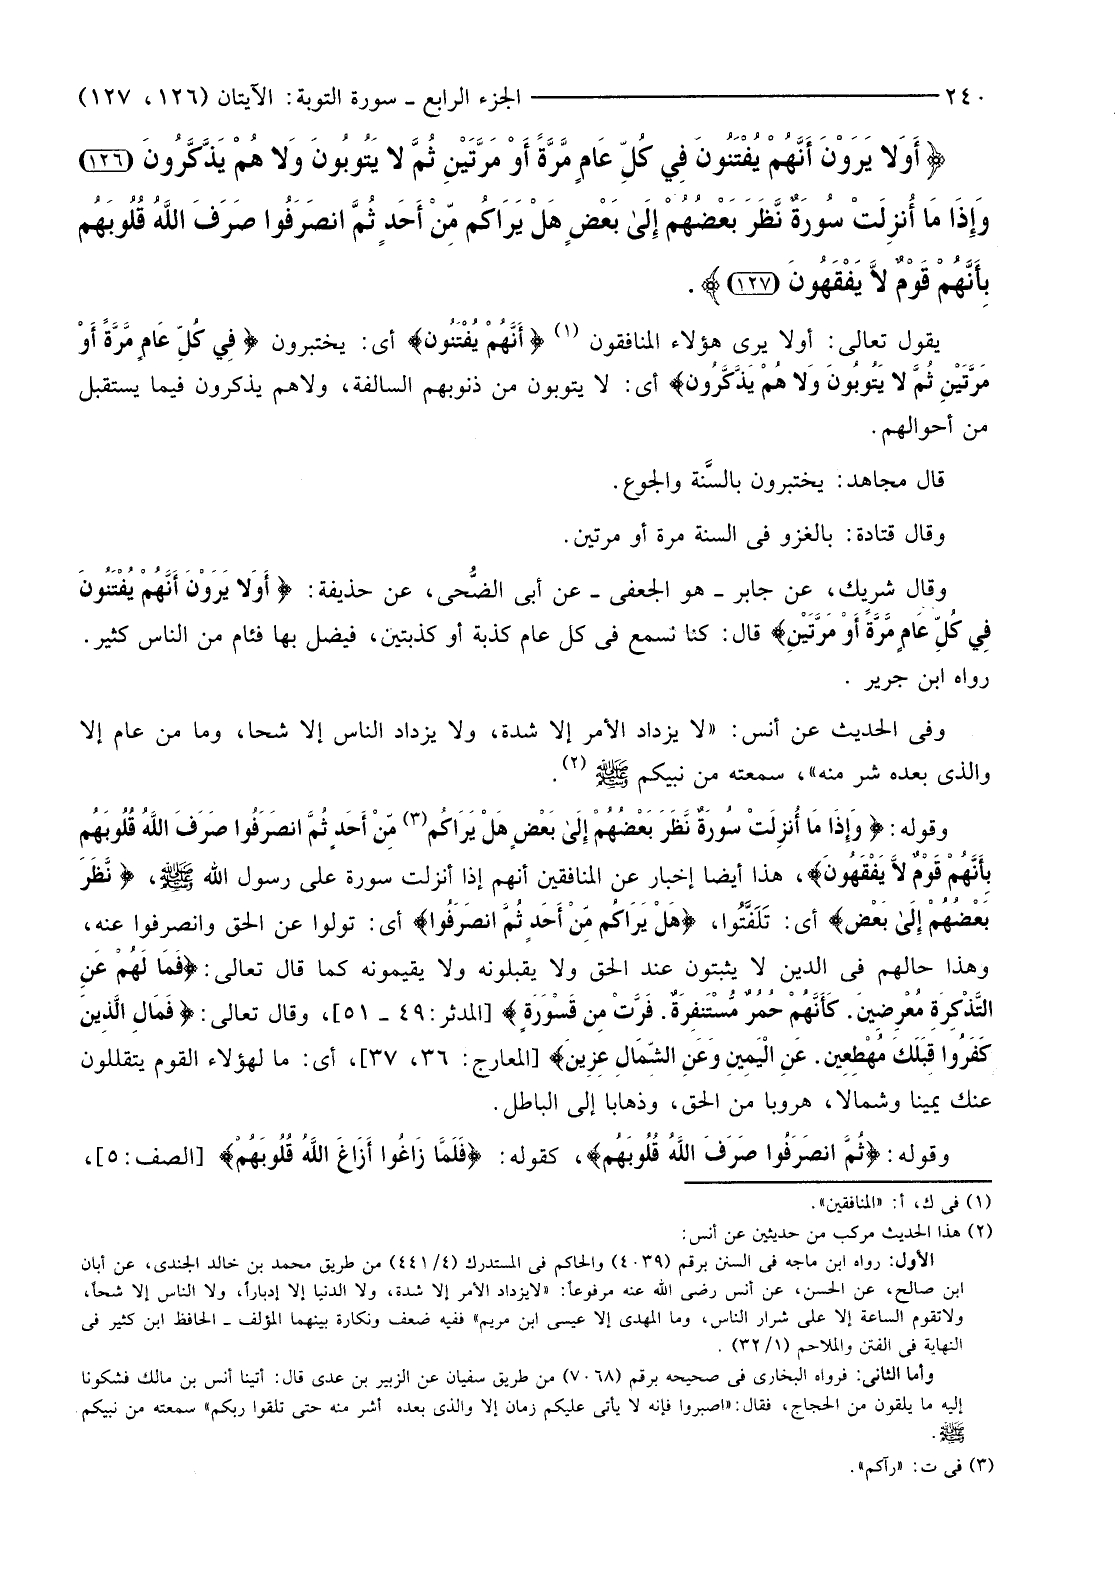 ٢٤٠ ــــــــــــــــــ الجزء الرابع ـ سورة التوبة: الآيتان (١٢٦، ١٢٧)
﴿ أَوَلا يَرَوْنَ أَنَّهُمْ يُفْتَنُونَ فِي كُلِّ عَامٍ مَّرَّةً أَوْ مَرَّتَيْنِ ثُمَّ لا يَتُوبُونَ وَلا هُمْ يَذَّكَّرُونَ (١٢٦)
وَإِذَا مَا أُنزِلَتْ سُورَةٌ نَّظَرَ بَعْضُهُمْ إِلَىٰ بَعْضٍ هَلْ يَرَاكُم مِّنْ أَحَدٍ ثُمَّ انصَرَفُوا صَرَفَ اللَّهُ قُلُوبَهُم
بِأَنَّهُمْ قَوْمٌ لاَّ يَفْقَهُونَ (١٢٧) ﴾ .
يقول تعالى: أولا يرى هؤلاء المنافقون (١) ﴿ أَنَّهُمْ يُفْتَنُون﴾ أى: يختبرون ﴿ فِي كُلِّ عَامٍ مَّرَّةً أَوْ
مَرَّتَيْنِ ثُمَّ لا يَتُوبُونَ وَلا هُمْ يَذَّكَّرُون﴾ أى: لا يتوبون من ذنوبهم السالفة، ولاهم يذكرون فيما يستقبل
من أحوالهم.
قال مجاهد: يختبرون بالسَّنة والجوع.
وقال قتادة: بالغزو فى السنة مرة أو مرتين.
وقال شريك، عن جابر ـ هو الجعفى ـ عن أبى الضُّحى، عن حذيفة: ﴿ أَوَلا يَرَوْنَ أَنَّهُمْ يُفْتَنُونَ
فِي كُلِّ عَامٍ مَّرَّةً أَوْ مَرَّتَيْنِ﴾ قال: كنا نسمع فى كل عام كذبة أو كذبتين، فيضل بها فئام من الناس كثير.
رواه ابن جرير .
وفى الحديث عن أنس: «لا يزداد الأمر إلا شدة، ولا يزداد الناس إلا شحا، وما من عام إلا
والذى بعده شر منه»، سمعته من نبيكم ﷺ (٢).
وقوله: ﴿ وَإِذَا مَا أُنزِلَتْ سُورَةٌ نَّظَرَ بَعْضُهُمْ إِلَىٰ بَعْضٍ هَلْ يَرَاكُم (٣) مِّنْ أَحَدٍ ثُمَّ انصَرَفُوا صَرَفَ اللَّهُ قُلُوبَهُم
بِأَنَّهُمْ قَوْمٌ لاَّ يَفْقَهُون﴾، هذا أيضا إخبار عن المنافقين أنهم إذا أنزلت سورة على رسول الله ﷺ، ﴿ نَّظَرَ
بَعْضُهُمْ إِلَىٰ بَعْض﴾ أى: تَلَفَّتُوا، ﴿هَلْ يَرَاكُم مِّنْ أَحَدٍ ثُمَّ انصَرَفُوا﴾ أى: تولوا عن الحق وانصرفوا عنه،
وهذا حالهم فى الدين لا يثبتون عند الحق ولا يقبلونه ولا يقيمونه كما قال تعالى: ﴿فَمَا لَهُمْ عَنِ
التَّذْكِرَةِ مُعْرِضِينَ. كَأَنَّهُمْ حُمُرٌ مُّسْتَنفِرَةٌ. فَرَّتْ مِن قَسْوَرَةٍ ﴾ [المدثر: ٤٩ ـ ٥١]، وقال تعالى: ﴿ فَمَالِ الَّذِينَ
كَفَرُوا قِبَلَكَ مُهْطِعِين. عَنِ الْيَمِينِ وَعَنِ الشِّمَالِ عِزِين﴾ [المعارج: ٣٦، ٣٧]، أى: ما لهؤلاء القوم يتقللون
عنك يمينا وشمالا، هروبا من الحق، وذهابا إلى الباطل.
وقوله: ﴿ثُمَّ انصَرَفُوا صَرَفَ اللَّهُ قُلُوبَهُم﴾، كقوله: ﴿فَلَمَّا زَاغُوا أَزَاغَ اللَّهُ قُلُوبَهُمْ﴾ [الصف: ٥]،
(١) فى ك، أ: «المنافقين».
(٢) هذا الحديث مركب من حديثين عن أنس:
الأول: رواه ابن ماجه فى السنن برقم (٤٠٣٩) والحاكم فى المستدرك (٤/ ٤٤١) من طريق محمد بن خالد الجندى، عن أبان
ابن صالح، عن الحسن، عن أنس رضى الله عنه مرفوعاً: «لايزداد الأمر إلا شدة، ولا الدنيا إلا إدباراً، ولا الناس إلا شحاً،
ولاتقوم الساعة إلا على شرار الناس، وما المهدى إلا عيسى ابن مريم» ففيه ضعف ونكارة بينهما المؤلف ـ الحافظ ابن كثير فى
النهاية فى الفتن والملاحم (١/ ٣٢) .
وأما الثانى: فرواه البخارى فى صحيحه برقم (٧٠٦٨) من طريق سفيان عن الزبير بن عدى قال: أتينا أنس بن مالك فشكونا
إليه ما يلقون من الحجاج، فقال: «اصبروا فإنه لا يأتى عليكم زمان إلا والذى بعده أشر منه حتى تلقوا ربكم» سمعته من نبيكم
ﷺ.
(٣) فى ت: «رآكم».